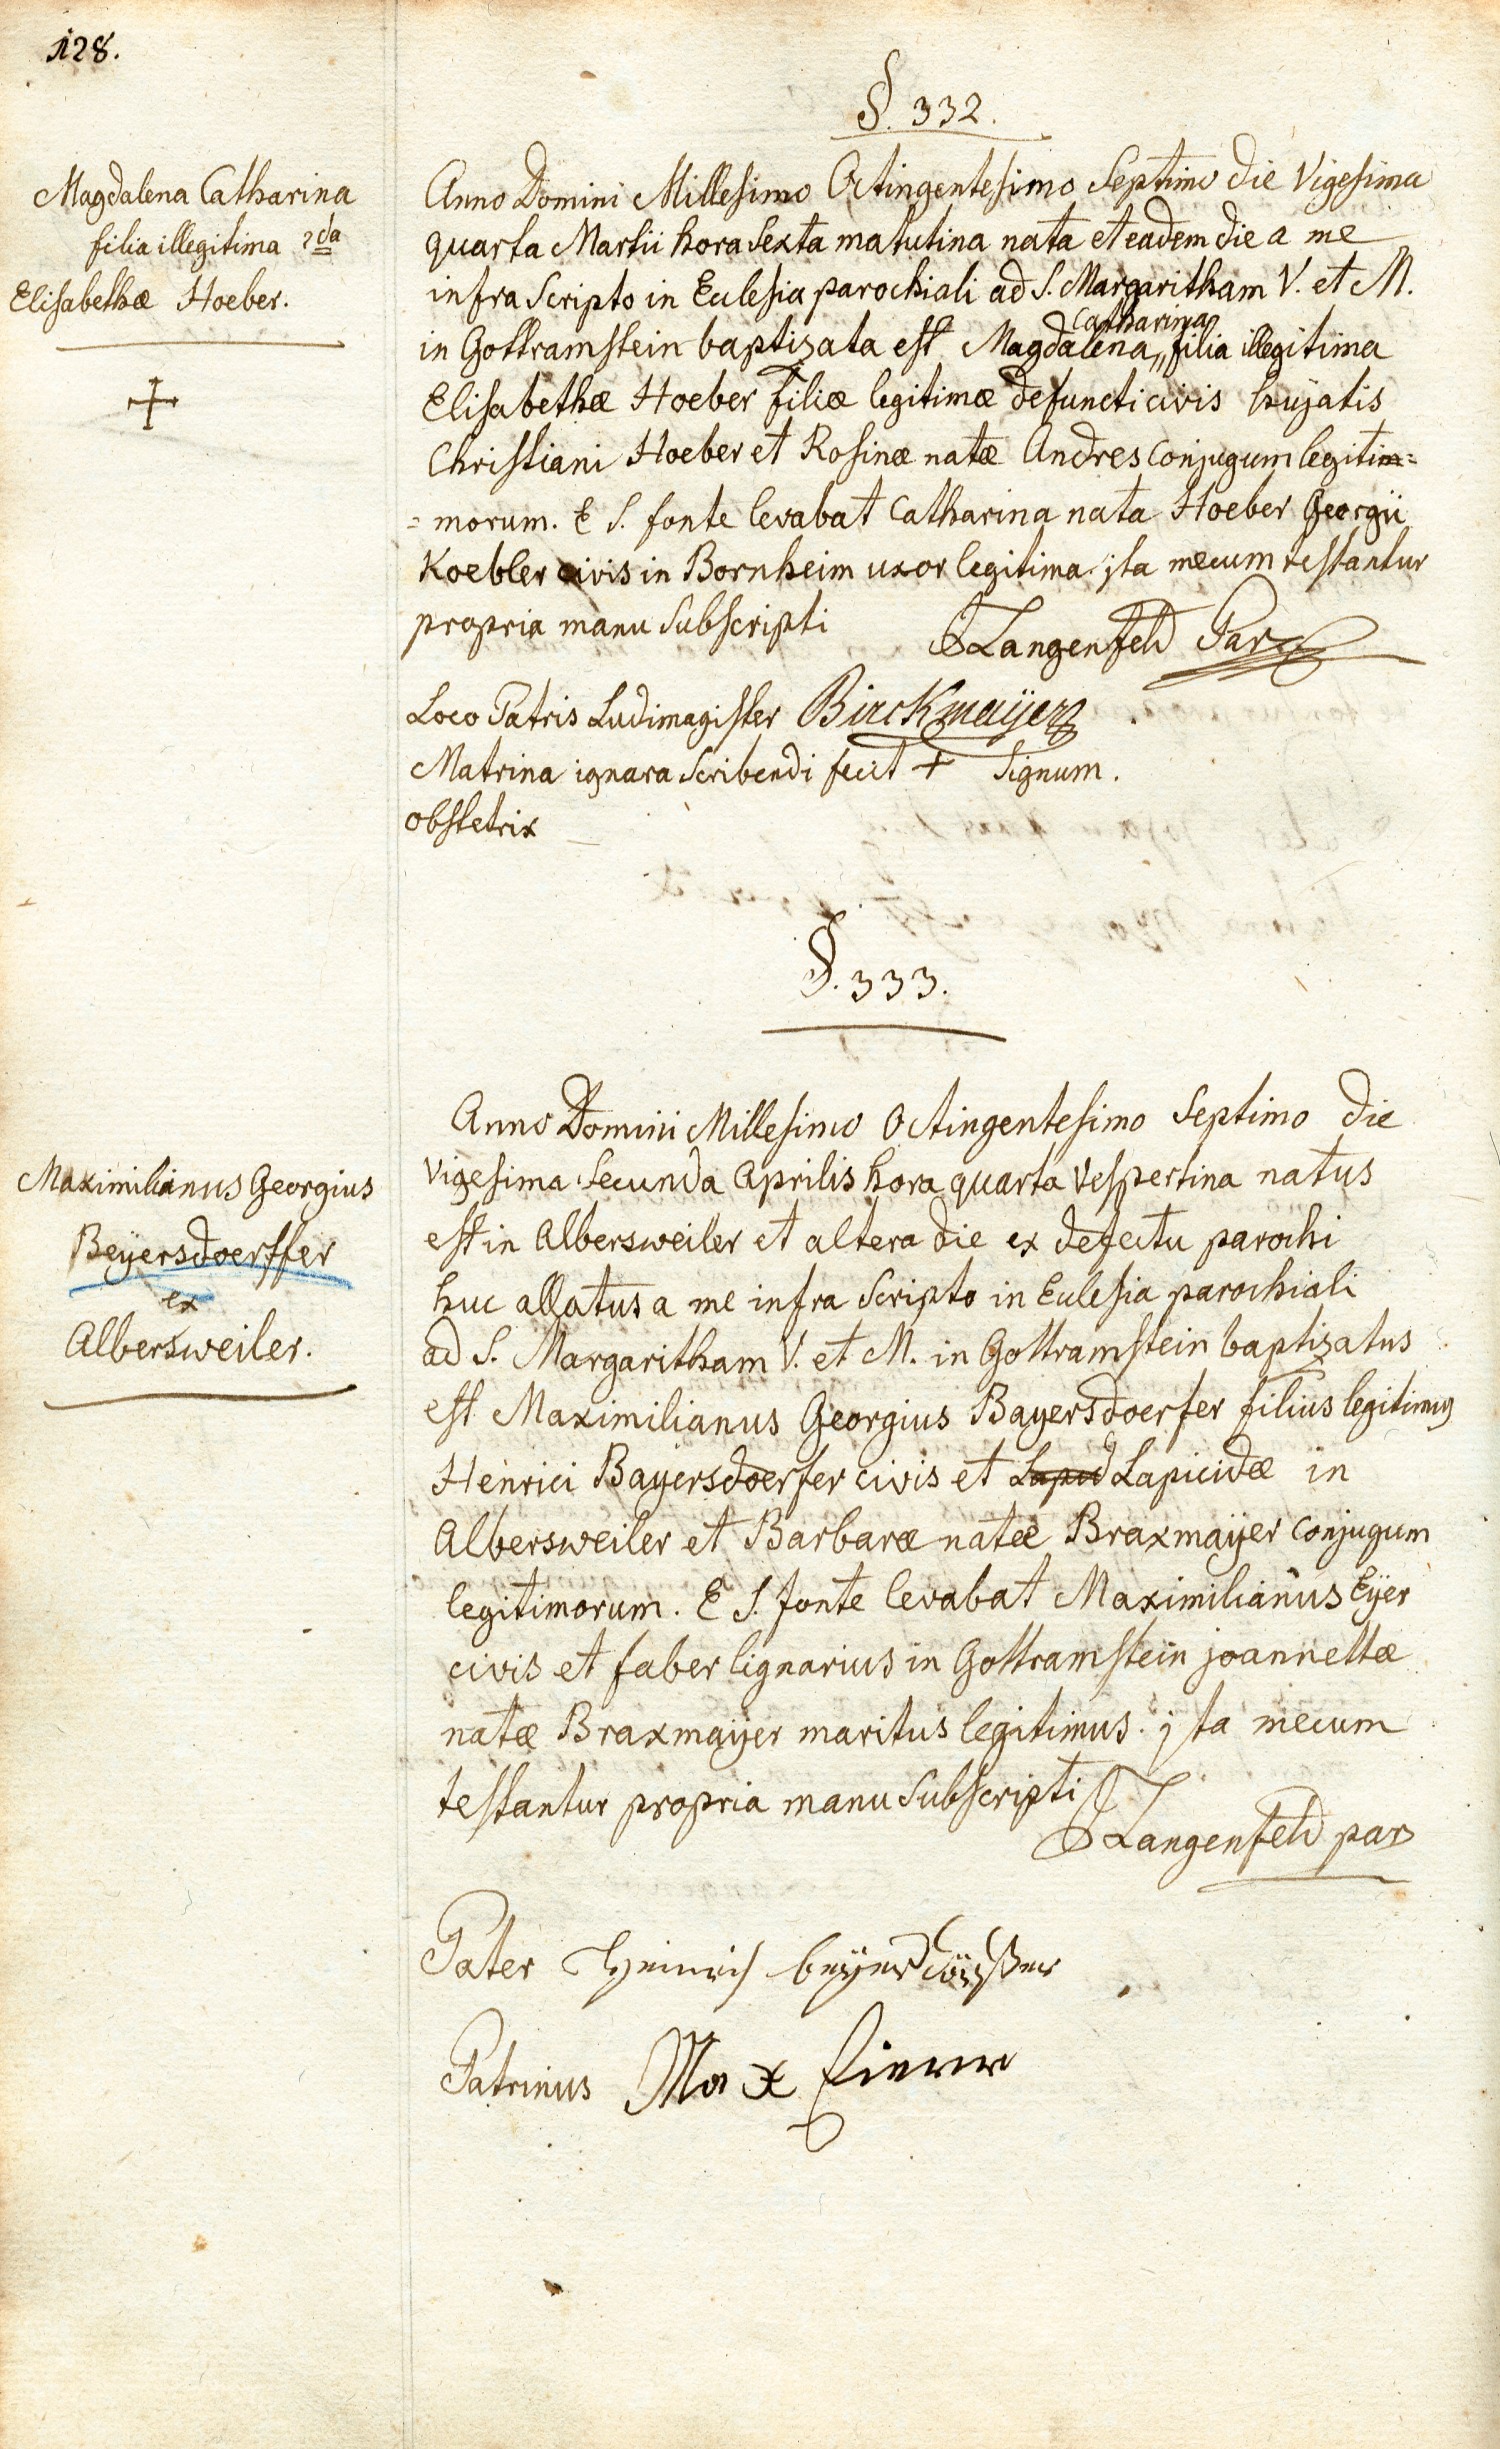 128.
§. 332.
Magdalena Catharina
filia illegitima 2da
Elisabethæ Hoeber.
Anno Domini Millesimo Octingentesimo Septimo die Vigesima
quarta Martii hora Sexta matutina nata et eadem die a me
infra Scripto in Eclesia parochiali ad S. Margaritham V. et M.
Catharina
in Gottramstein baptizata est Magdalena,, filia illegitima
Elisabethæ Hoeber filiæ legitimæ defuncti civis hujatis
Christiani Hoeber et Rosinæ natæ Andres Conjugum legitim=
=morum. E S. fonte levabat Catharina nata Hoeber Georgii
Koebler civis in Bornheim uxor legitima. jta mecum testantur
propria manu Subscripti
JLangenfeld Par
Loco Patris Ludimagister Birckmaÿer
Matrina ignara Scribendi fecit + Signum.
obstetrix
§. 333.
Maximilianus Georgius
Beÿersdoerffer
ex
Albersweiler.
Anno Domini Millesimo Octingentesimo Septimo die
Vigesima Secunda Aprilis hora quarta Vespertina natus
est in Albersweiler et altera die ex defectu parochi
huc allatus a me infra Scripto in Eclesia parochiali
ad S. Margaritham V. et M. in Gottramstein baptizatus
est Maximilianus Georgius Bayersdoerfer filius legitimus
Henrici Bayersdoerfer civis et Lapid Lapicidæ in
Albersweiler et Barbaræ natæ Braxmaÿer Conjugum
legitimorum. E S. fonte levabat Maximilianus Eÿer
civis et faber lignarius in Gottramstein joannettæ
natæ Braxmaÿer maritus legitimus. jta mecum
testantur propria manu Subscripti
JLangenfeld par
Pater Heinrich
Patrinus Max